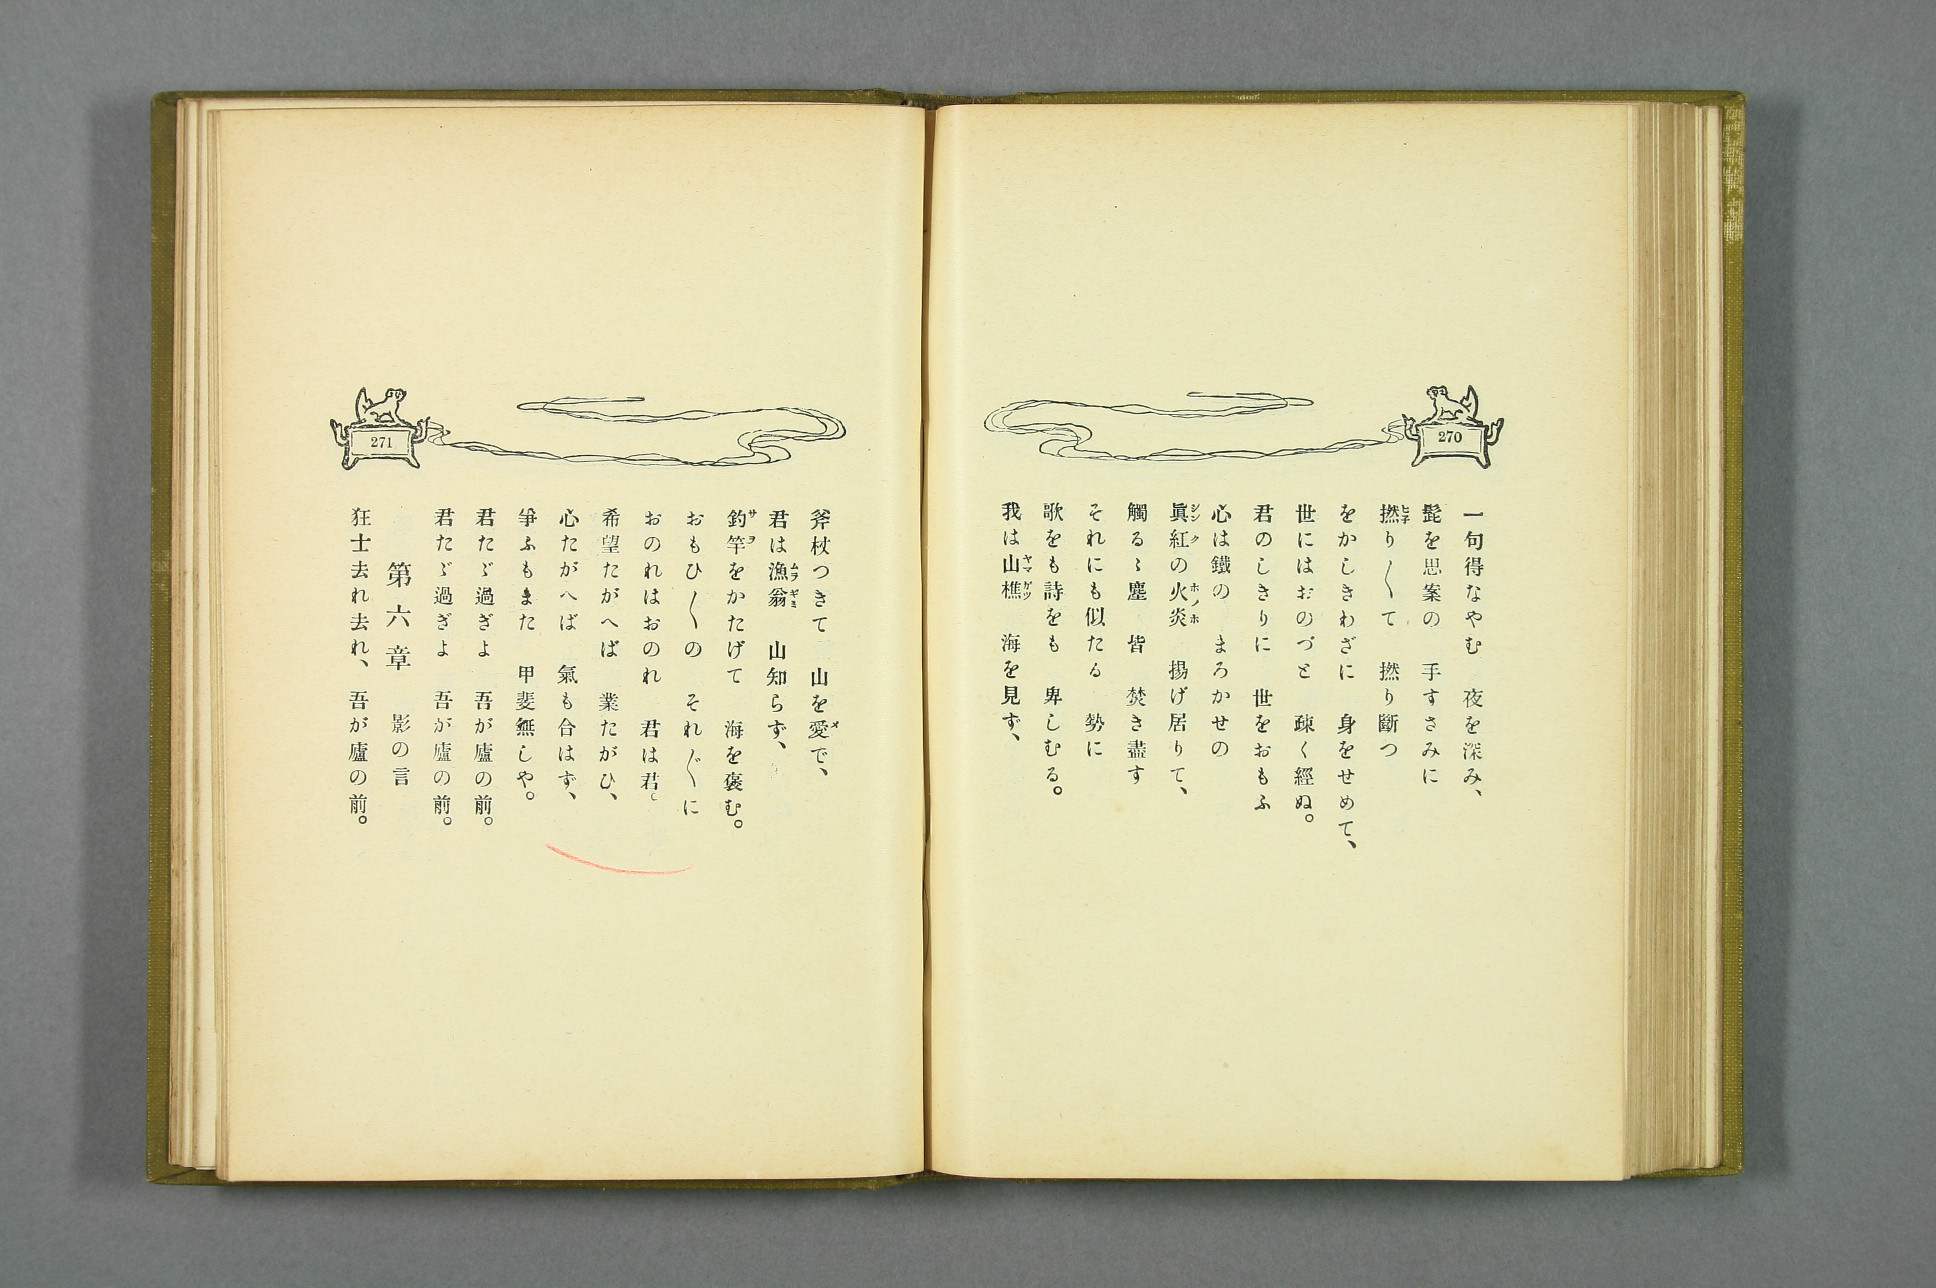 270
一句得なやむ　夜を深み、
髭を思案の　手すさみに
撚り〱て　撚り斷つ
をかしきわざに　身をせめて、
世にはおのづと　疎く經ぬ。
君のしきりに　世をおもふ
心は鐵の　まろかせの
眞紅の火炎　揚げ居りて、
觸るゝ塵　皆　焚き盡す
それにも似たる　勢に
歌をも詩をも　卑しむる。
我は山樵　海を見ず、
271
斧杖つきて　山を愛で、
君は漁翁　山知らず、
釣竿をかたげて　海を褒む。
おもひ〱の　それ〲に
おのれはおのれ　君は君。
希望たがへば　業たがひ、
心たがへば　氣も合はず、
爭ふもまた　甲斐無しや。
君たゞ過ぎよ　吾が廬の前。
君たゞ過ぎよ　吾が廬の前。
第六章　影の言
狂士去れ去れ、吾が廬の前。